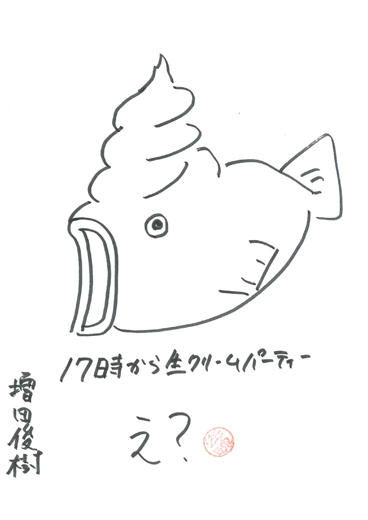 17時から生クリームパーティー
え?
増田俊樹